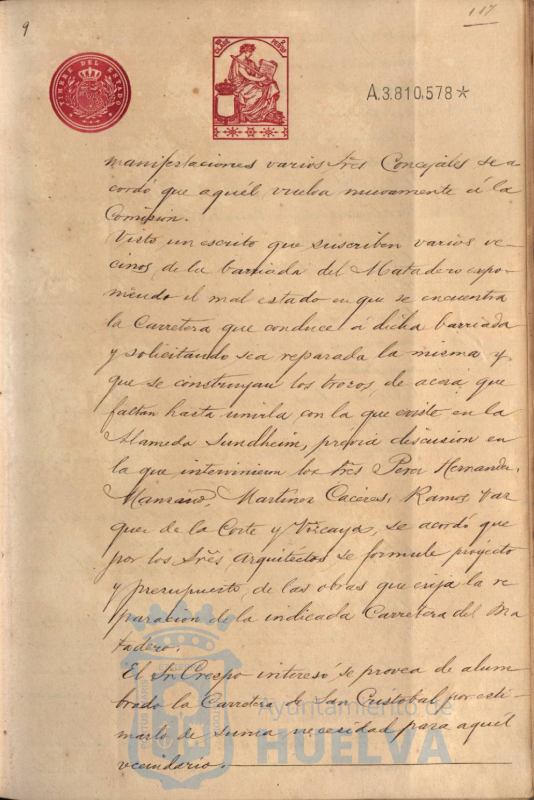 9
117
TIMBRE DEL ESTADO
A.3.810,578*
manifestaciones varios Sres Concejales se a
cordó que aquél vuelva nuevamente á la
Comision.
Visto un escrito que suscriben varios ve-
cinos de la barriada del Matadero expo-
niendo el mal estado en que se encuentra
la Carretera que conduce á dicha barriada
y solicitando sea reparada la misma y
que se construyan los trozos de acera que
faltan hasta unirla con la que existe en la
Alameda Sundheim, previa discusion en
la que intervinieron los Sres Perez Hernandez,
Manzano, Martinez Caceres, Ramos Vaz
quez de la Corte y Vizcaya, se acordó que
por los Sres Arquitectos se formule proyecto
y presupuesto de las obras que exija la re
paracion de la indicada Carretera del Ma
tadero.
El Sr Crespo interesó se provea de alum
brado la Carretera de San Cristobal por esti-
marlo de suma necesidad para aquél
vecindario.
Ayuntamiento de
HUELVA